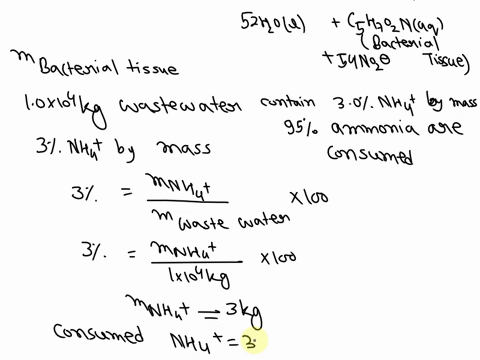 52H2O(l) + C5H7O2N(aq)
(Bacterial
+ 54Na2⊖ Tissue)
m Bacterial tissue
1.0x10⁴ kg wastewater contain 3.0% NH4⁺ by mass
95% ammonia are
consumed
3% NH4⁺ by mass
3% = mNH4⁺ / m waste water x100
3% = mNH4⁺ / 1x10⁴kg x100
mNH4⁺ = 3kg
Consumed NH4⁺ = 3